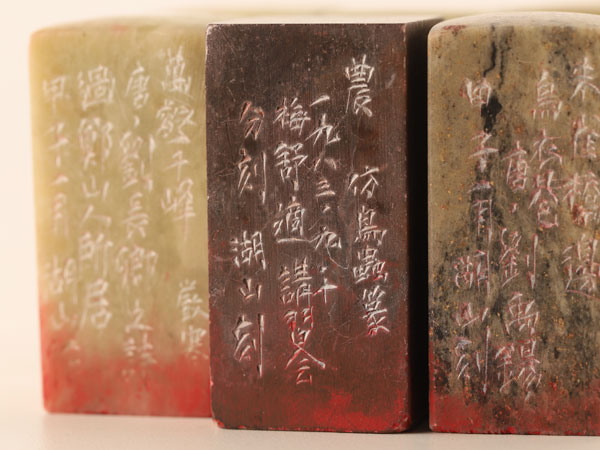 萬壑千峰
唐、劉長卿之詩
過鄭山人所居
甲子一月 湖山
農 仿鳥蟲篆
一九八三、九、
梅舒適 講習会
刻 湖山刻
朱雀橋邊
烏衣巷
唐、劉禹錫
甲子一月 湖山刻